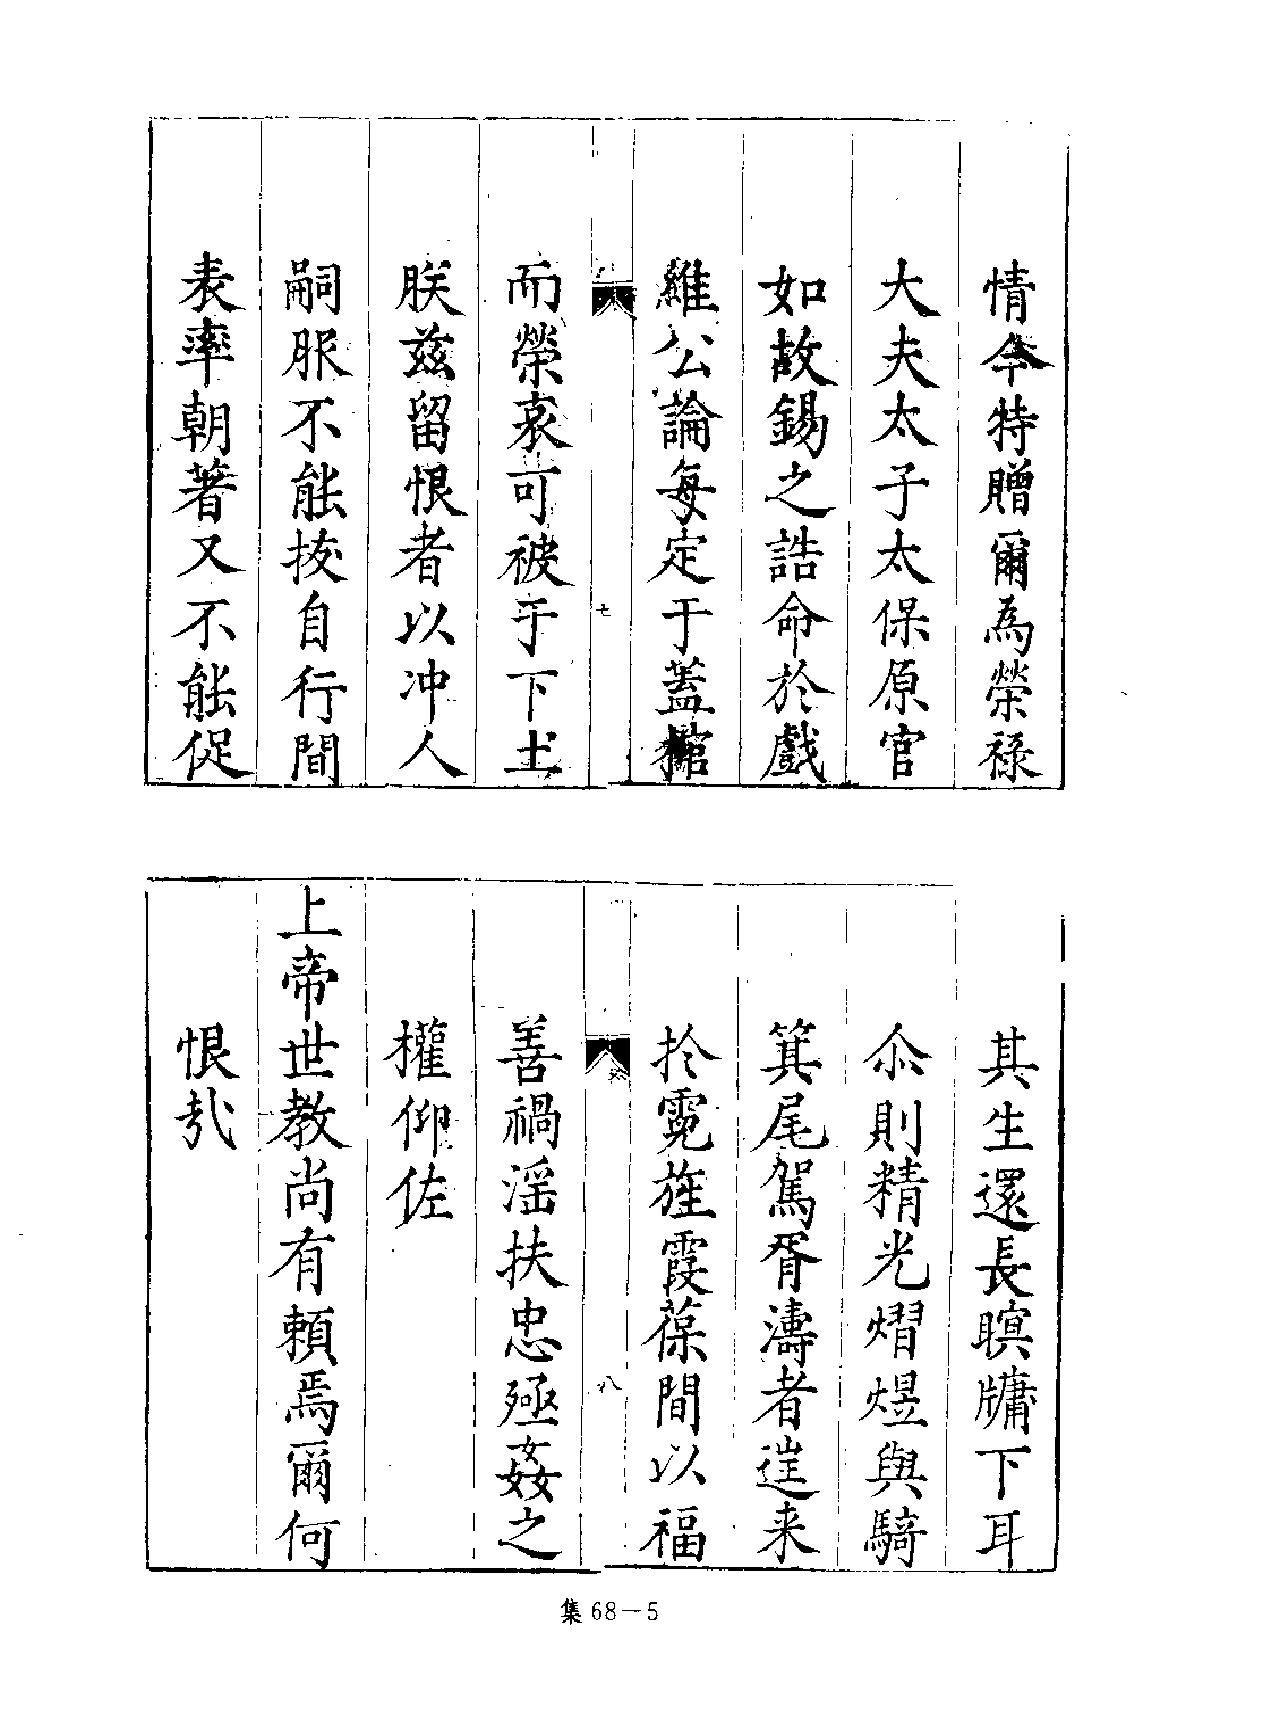 情今特贈爾為榮祿
大夫太子太保原官
如故錫之誥命於戲
雖公論每定于蓋棺
七
而榮哀可被乎下土
朕茲留恨者以冲人
嗣服不能拔自行間
表率朝著又不能促
其生還長瞑牗下耳
尒則精光熠煜與騎
箕尾駕胥濤者逞来
扵霓旌霞葆間以福
八
善禍淫扶忠殛姦之
權仰佐
上帝世教尚有賴焉爾何
恨㢤
集 68—5